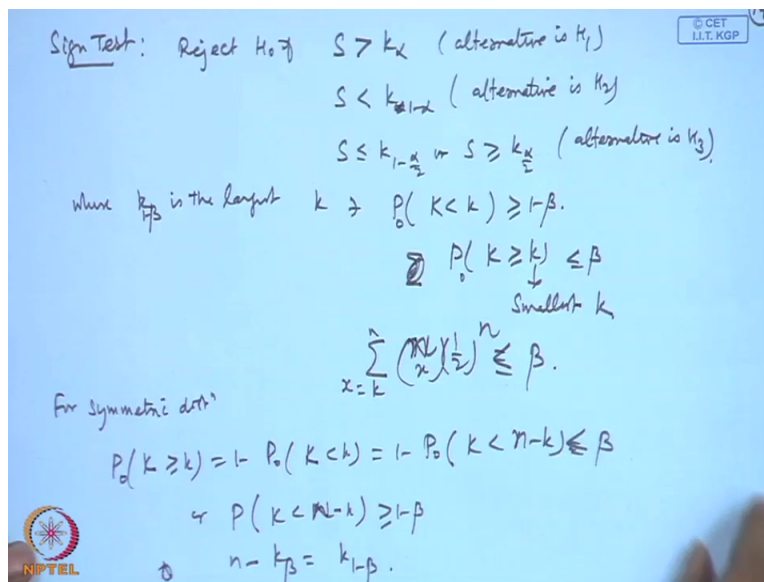 © CET
I.I.T. KGP
Sign Test: Reject H₀ if S > k_α (alternative is H₁)
S < k_{1-α} (alternative is H₂)
S ≤ k_{1-α/2} or S ≥ k_{α/2} (alternative is H₃).
where k_{1-β} is the largest k ∋ P₀(K < k) ≥ 1-β.
P₀(K ≥ k) ≤ β
↓
Smallest k
∑_{x=k}^{n} (n x)(1/2)^n ≤ β.
For symmetric distⁿ
P₀(K ≥ k) = 1- P₀(K < k) = 1- P₀(K < n-k) ≤ β
or P(K < n-k) ≥ 1-β
n - k_β = k_{1-β}.
NPTEL